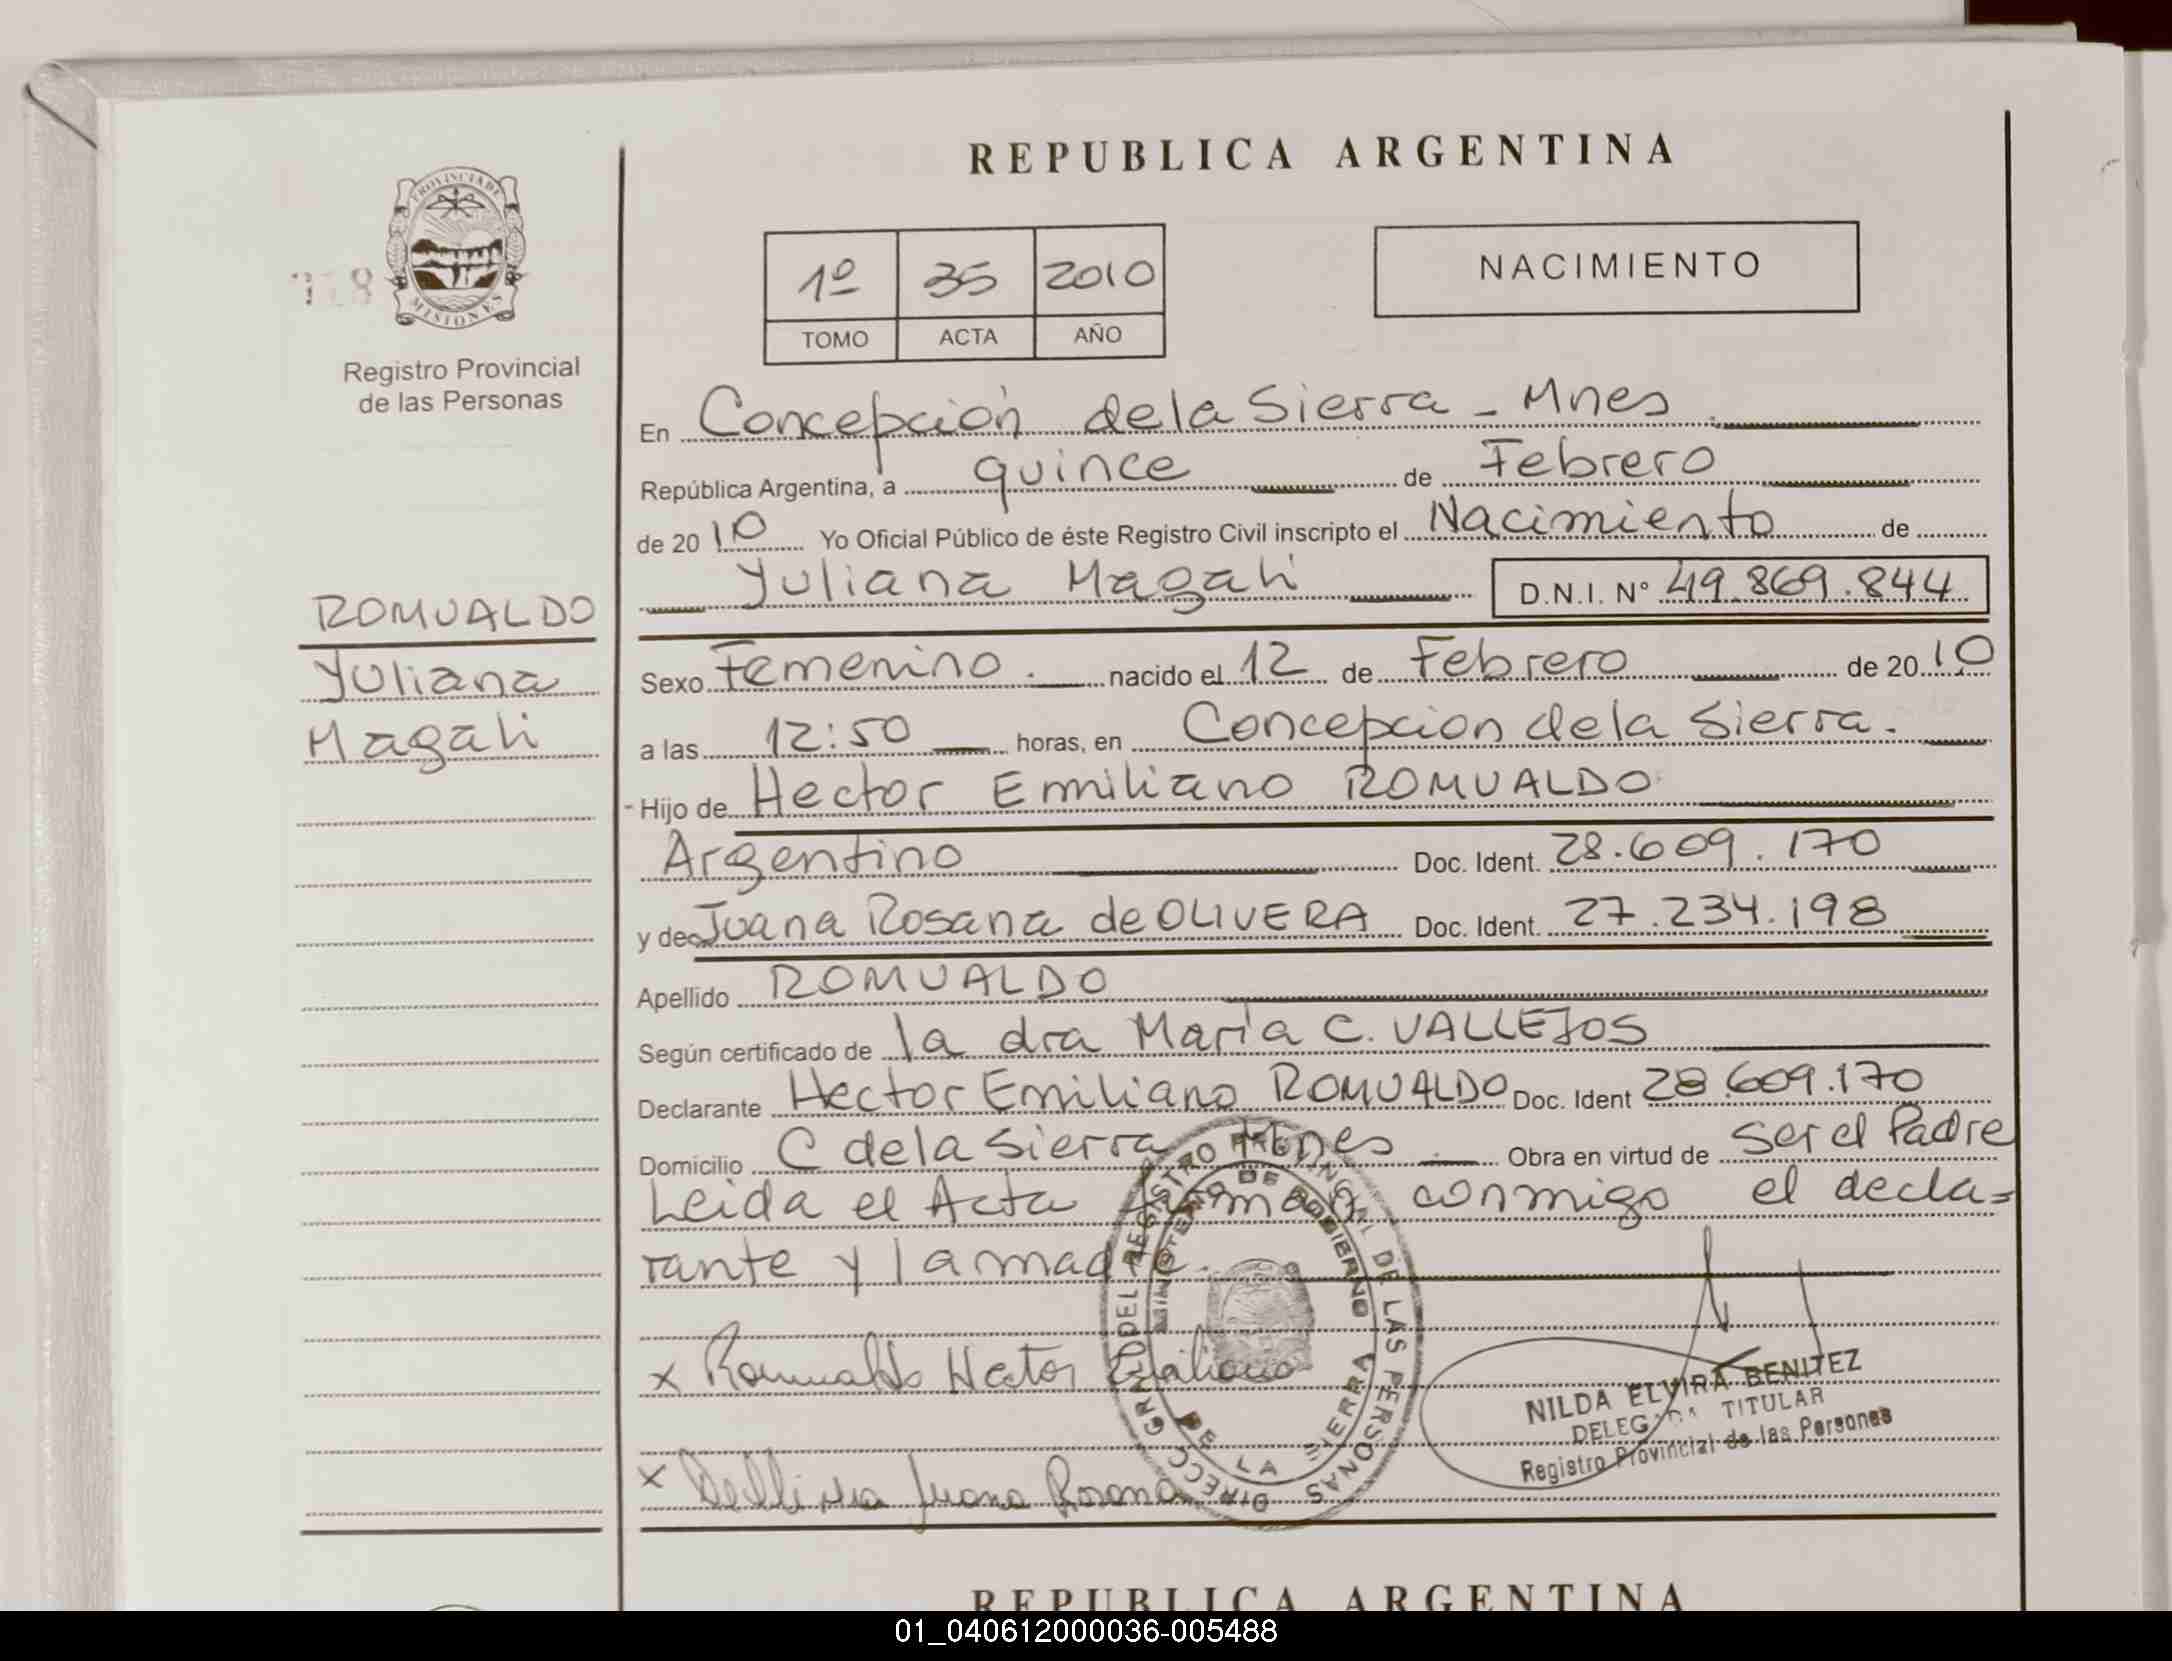 REPUBLICA ARGENTINA
PROVINCIA DE
MISIONES
Registro Provincial
de las Personas
1º 35 2010
TOMO ACTA AÑO
NACIMIENTO
En Concepción de la Sierra - Mnes.
República Argentina, a quince de Febrero
de 2010 Yo Oficial Público de éste Registro Civil inscripto el Nacimiento de
Yuliana Magali D.N.I. Nº 49.869.844
ROMUALDO
Yuliana
Magali
Sexo Femenino. nacido el 12 de Febrero de 2010
a las 12:50 horas, en Concepcion de la Sierra.
Hijo de Hector Emiliano ROMUALDO
Argentino Doc. Ident. 28.609.170
y de Juana Rosana de OLIVERA Doc. Ident. 27.234.198
Apellido ROMUALDO
Según certificado de la dra María C. VALLEJOS
Declarante Hector Emiliano ROMUALDO Doc. Ident 28.609.170
Domicilio C de la Sierra Mnes Obra en virtud de ser el Padre
Leida el Acta firman conmigo el decla=
rante y la madre.
x Romualdo Hector Emiliano
x De Olivera Juana Rosana
DIRECC. GRAL. DEL REGISTRO PROVINCIAL DE LAS PERSONAS
MINISTERIO DE GOBIERNO
DE LA SIERRA
NILDA ELVIRA BENITEZ
DELEGADA TITULAR
Registro Provincial de las Personas
REPUBLICA ARGENTINA
01_040612000036-005488